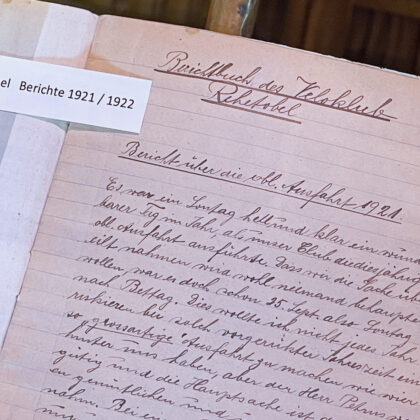 el Berichte 1921 / 1922
Berichtbuch des Veloklub
Rehetobel
Bericht über die obl. Ausfahrt 1921.
Es war ein Sontag hell und klar ein wunder
barer Tag im Jahr, als unser Club die diesjährige
obl. Ausfahrt ausführte. Dass wir die Sache
eilt nahmen wird wohl niemand behaupte
wollen, war es doch schon 25. Sept. also Sontag
nach Bettag. Dies wollte ich nicht jedes Jahr
riskieren bei solch vorgerückter Jahreszeit ein
so grossartige Ausfahrt zu machen wie wir
hinter uns haben, aber der Herr Petrus
gutig und die Hauptsache ist
en gemütlichen und
nahm. Bei ei